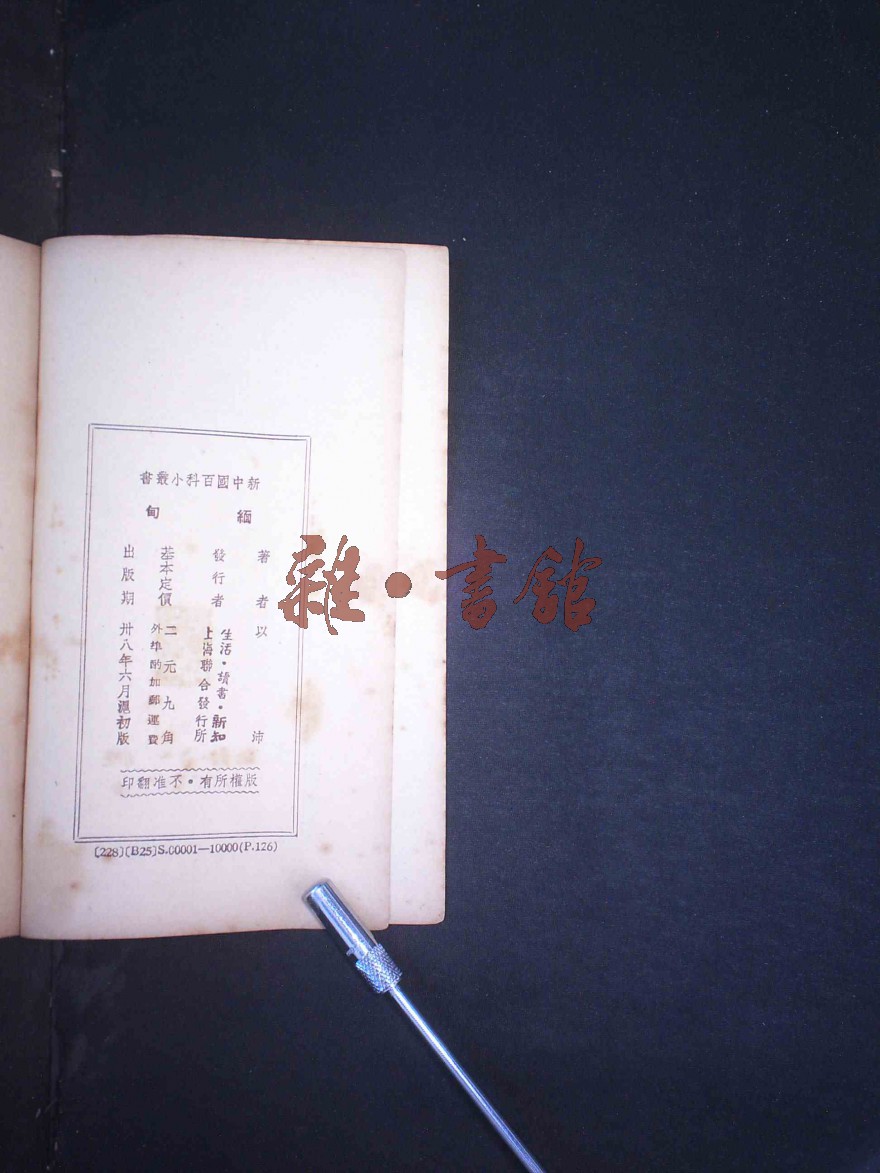 新中國百科小叢書
緬甸
著者 以沛
發行者 生活·讀書·新知
上海聯合發行所
基本定價 二元九角
外埠酌加郵運費
出版期 卅八年六月滬初版
版權所有·不准翻印
〔228〕〔B25〕S.00001—10000(P.126)
雜·書館